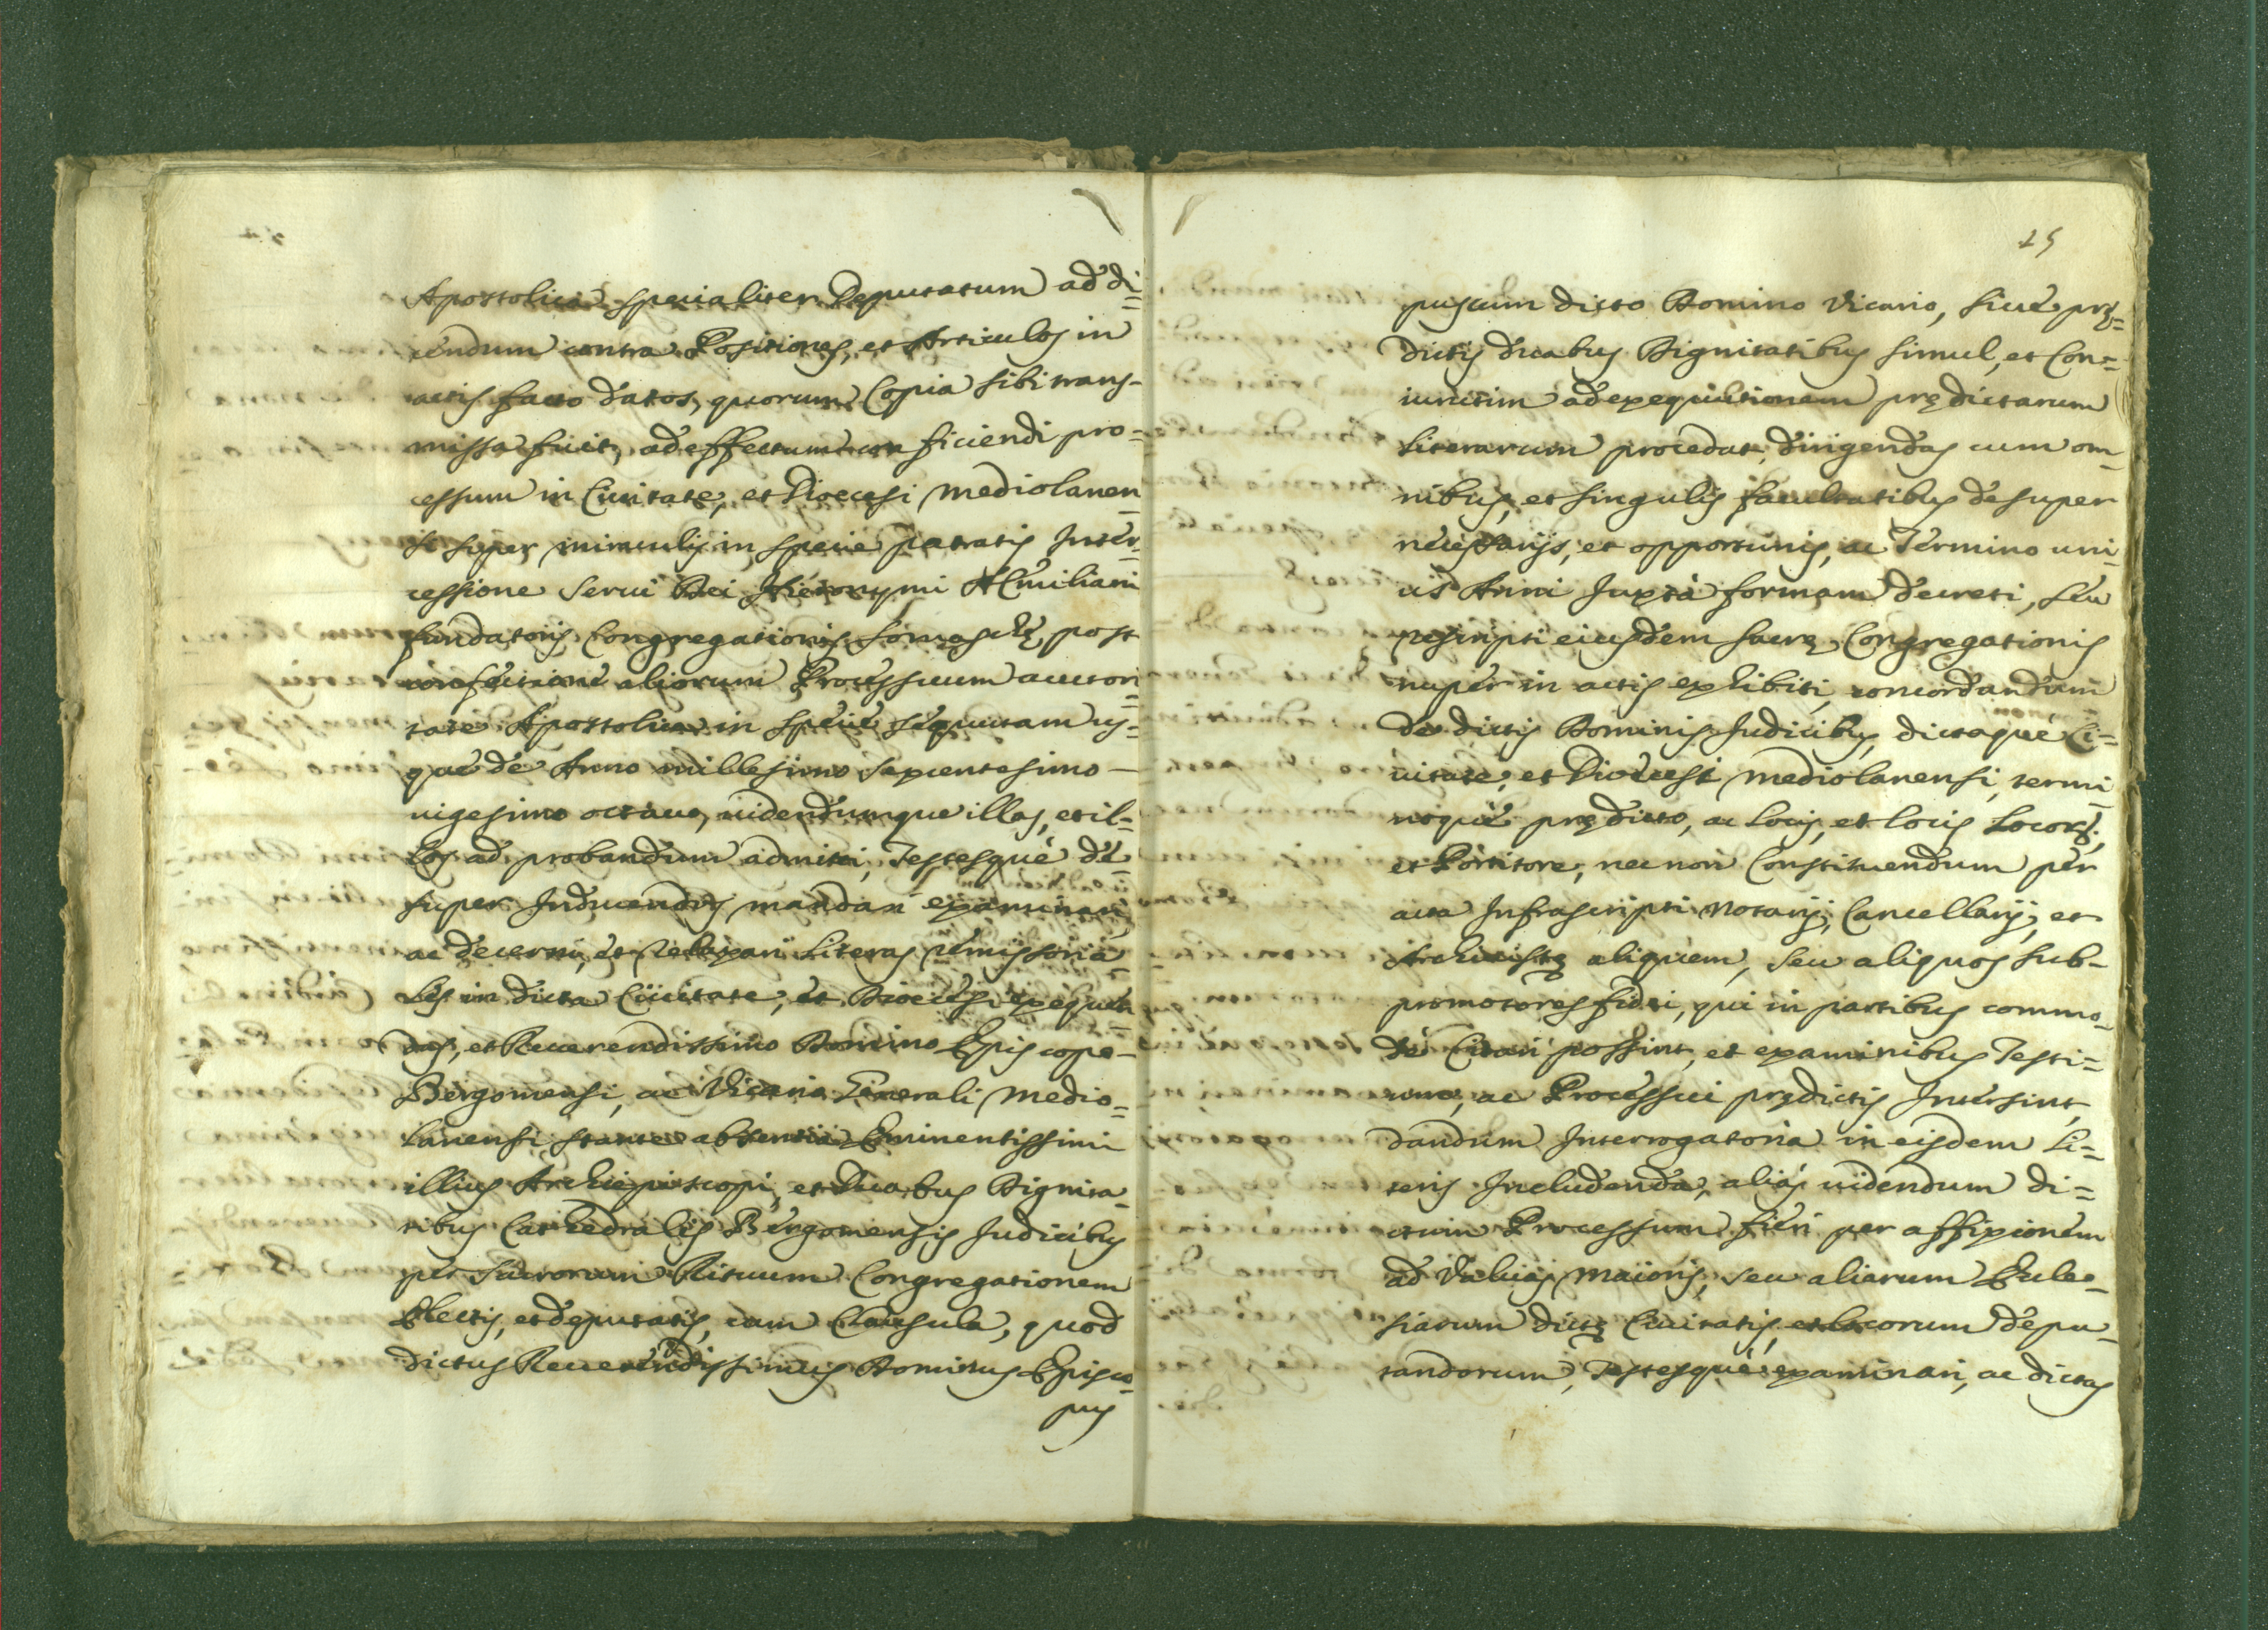 Apostolica specialiter Deputatum ad di=
cendum contra Positiones, et Articulos in
actis facto datos, quorum Copia sibi trans-
missa fuit, ad effectum conficiendi pro=
cessum in Ciuitate, et Diœcesi Mediolanen
si super miraculis in specie patratis Inter=
cessione Serui Dei Hieronymi Æmiliani
fundatoris Congregationis Somaschę, post
confectione aliorum Processuum auctori
tate Apostolica in specie sequutam us=
que de Anno millesimo septuentesimo—
uigesimo octauo, uidendumque illas, et il=
los ad probandum admitti, Testesque de
super Inducendos mandari examinari
ac decerni, et relaxari Literas remissoria
les in dicta Ciuitate, et Diœcesi exequen
das, et Reuerendissimo Domino Episcopo-
Bergomensi, ac Vicario Generali Medio=
lanensi stante absentia Eminentissimi
illius Archiepiscopi, et Duabus Dignita
tibus Cathedralis Bergomensis Judicibus
per Sacrorum Rituum Congregationem
Electis, et deputatis, cum Clausula, quod
dictus Reuerendissimus Dominus Episco=
pus
25
pus cum dicto Domino Vicario, siue prę=
dictis duabus Dignitatibus simul, et Con=
iunctim ad exequutionem prędictarum
Literarum procedat, dirigendas cum om
nibus, et singulis facultatibus desuper
necessarijs, et opportunis, ac Termino uni
us Anni Juxta formam decreti, seu
rescripti eiusdem sacrę Congregationis
nuper in actis exhibiti, concordandum
de dictis Dominis Judicibus, dictaque Ci=
uitate, et Diœcesi Mediolanensi, termi
noque prędicto, ac Locis, et locis Locorũ,
et Portitore, nec non Constituendum per
acta Infrascripti Notarij, Cancellarij, et
Archiuistę aliquem, seu aliquos sub-
promotores fidei, qui in partibus commo
de Citari possint, et examinibus Testi=
um, ac Processui prędictis Intersint,
dandum Interrogatoria in eisdem Li=
teris Includenda, alias uidendum di=
ctum Processum fieri per affixionem
ad Valuas Maioris, seu aliarum Eccle-
siarum dictę Ciuitatis, et locorum depu
tandorum, Testesque examinari, ac dictas